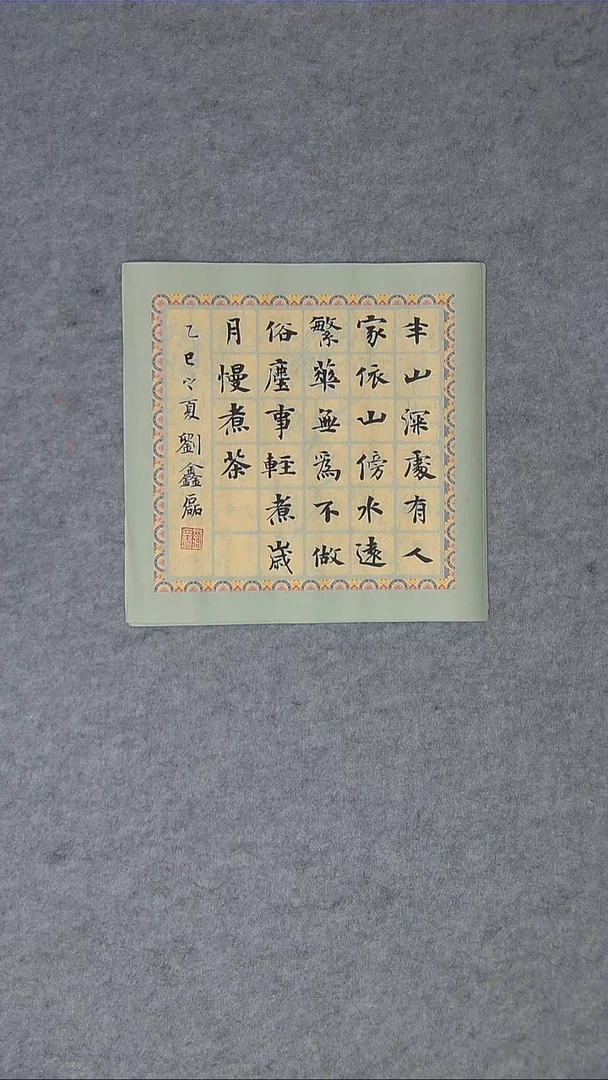 半山深處有人
家依山傍水遠
繁華無爲不做
俗塵事輕煮歲
月慢煮茶
乙巳之夏劉鑫磊